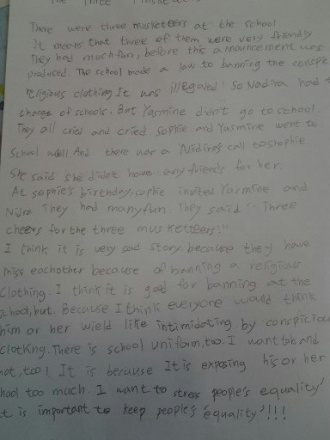 The Three Musketeers
There were three musketeers at the school
It means that three of them were very friendly
They had much fun, before this announcement was
produced. The school made a law to banning the conspic
religious clothing It was illegeved! So Nadira had t
change of schools. But Yasmine didn't go to school.
They all cried and cried Sophie and Yasmine went to
School And there was a Nidira's call to sophie
She said she didnt have any friends for her.
At sophie's birthday, sophie invited Yasmine and
They had many fun. They said "Three
cheers for the three musketeers!"
I think it is very sad story. because they have
miss eachother because of banning a religious
Clothing. I think it is good for banning at the
school, but. Because I think everyone would think
him or her wield like intimidating by conspiciou
clothing. There is school uniform, too. I want
not, too! It is because It is exposing his or her
hool too much. I want to stress people's equality!
t is important to keep people's 'equality'!!!